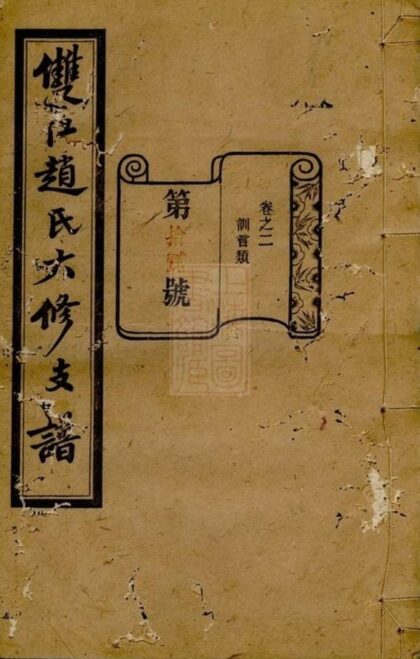 卷之二
訓言類
第拾號
雙江趙氏六修支譜